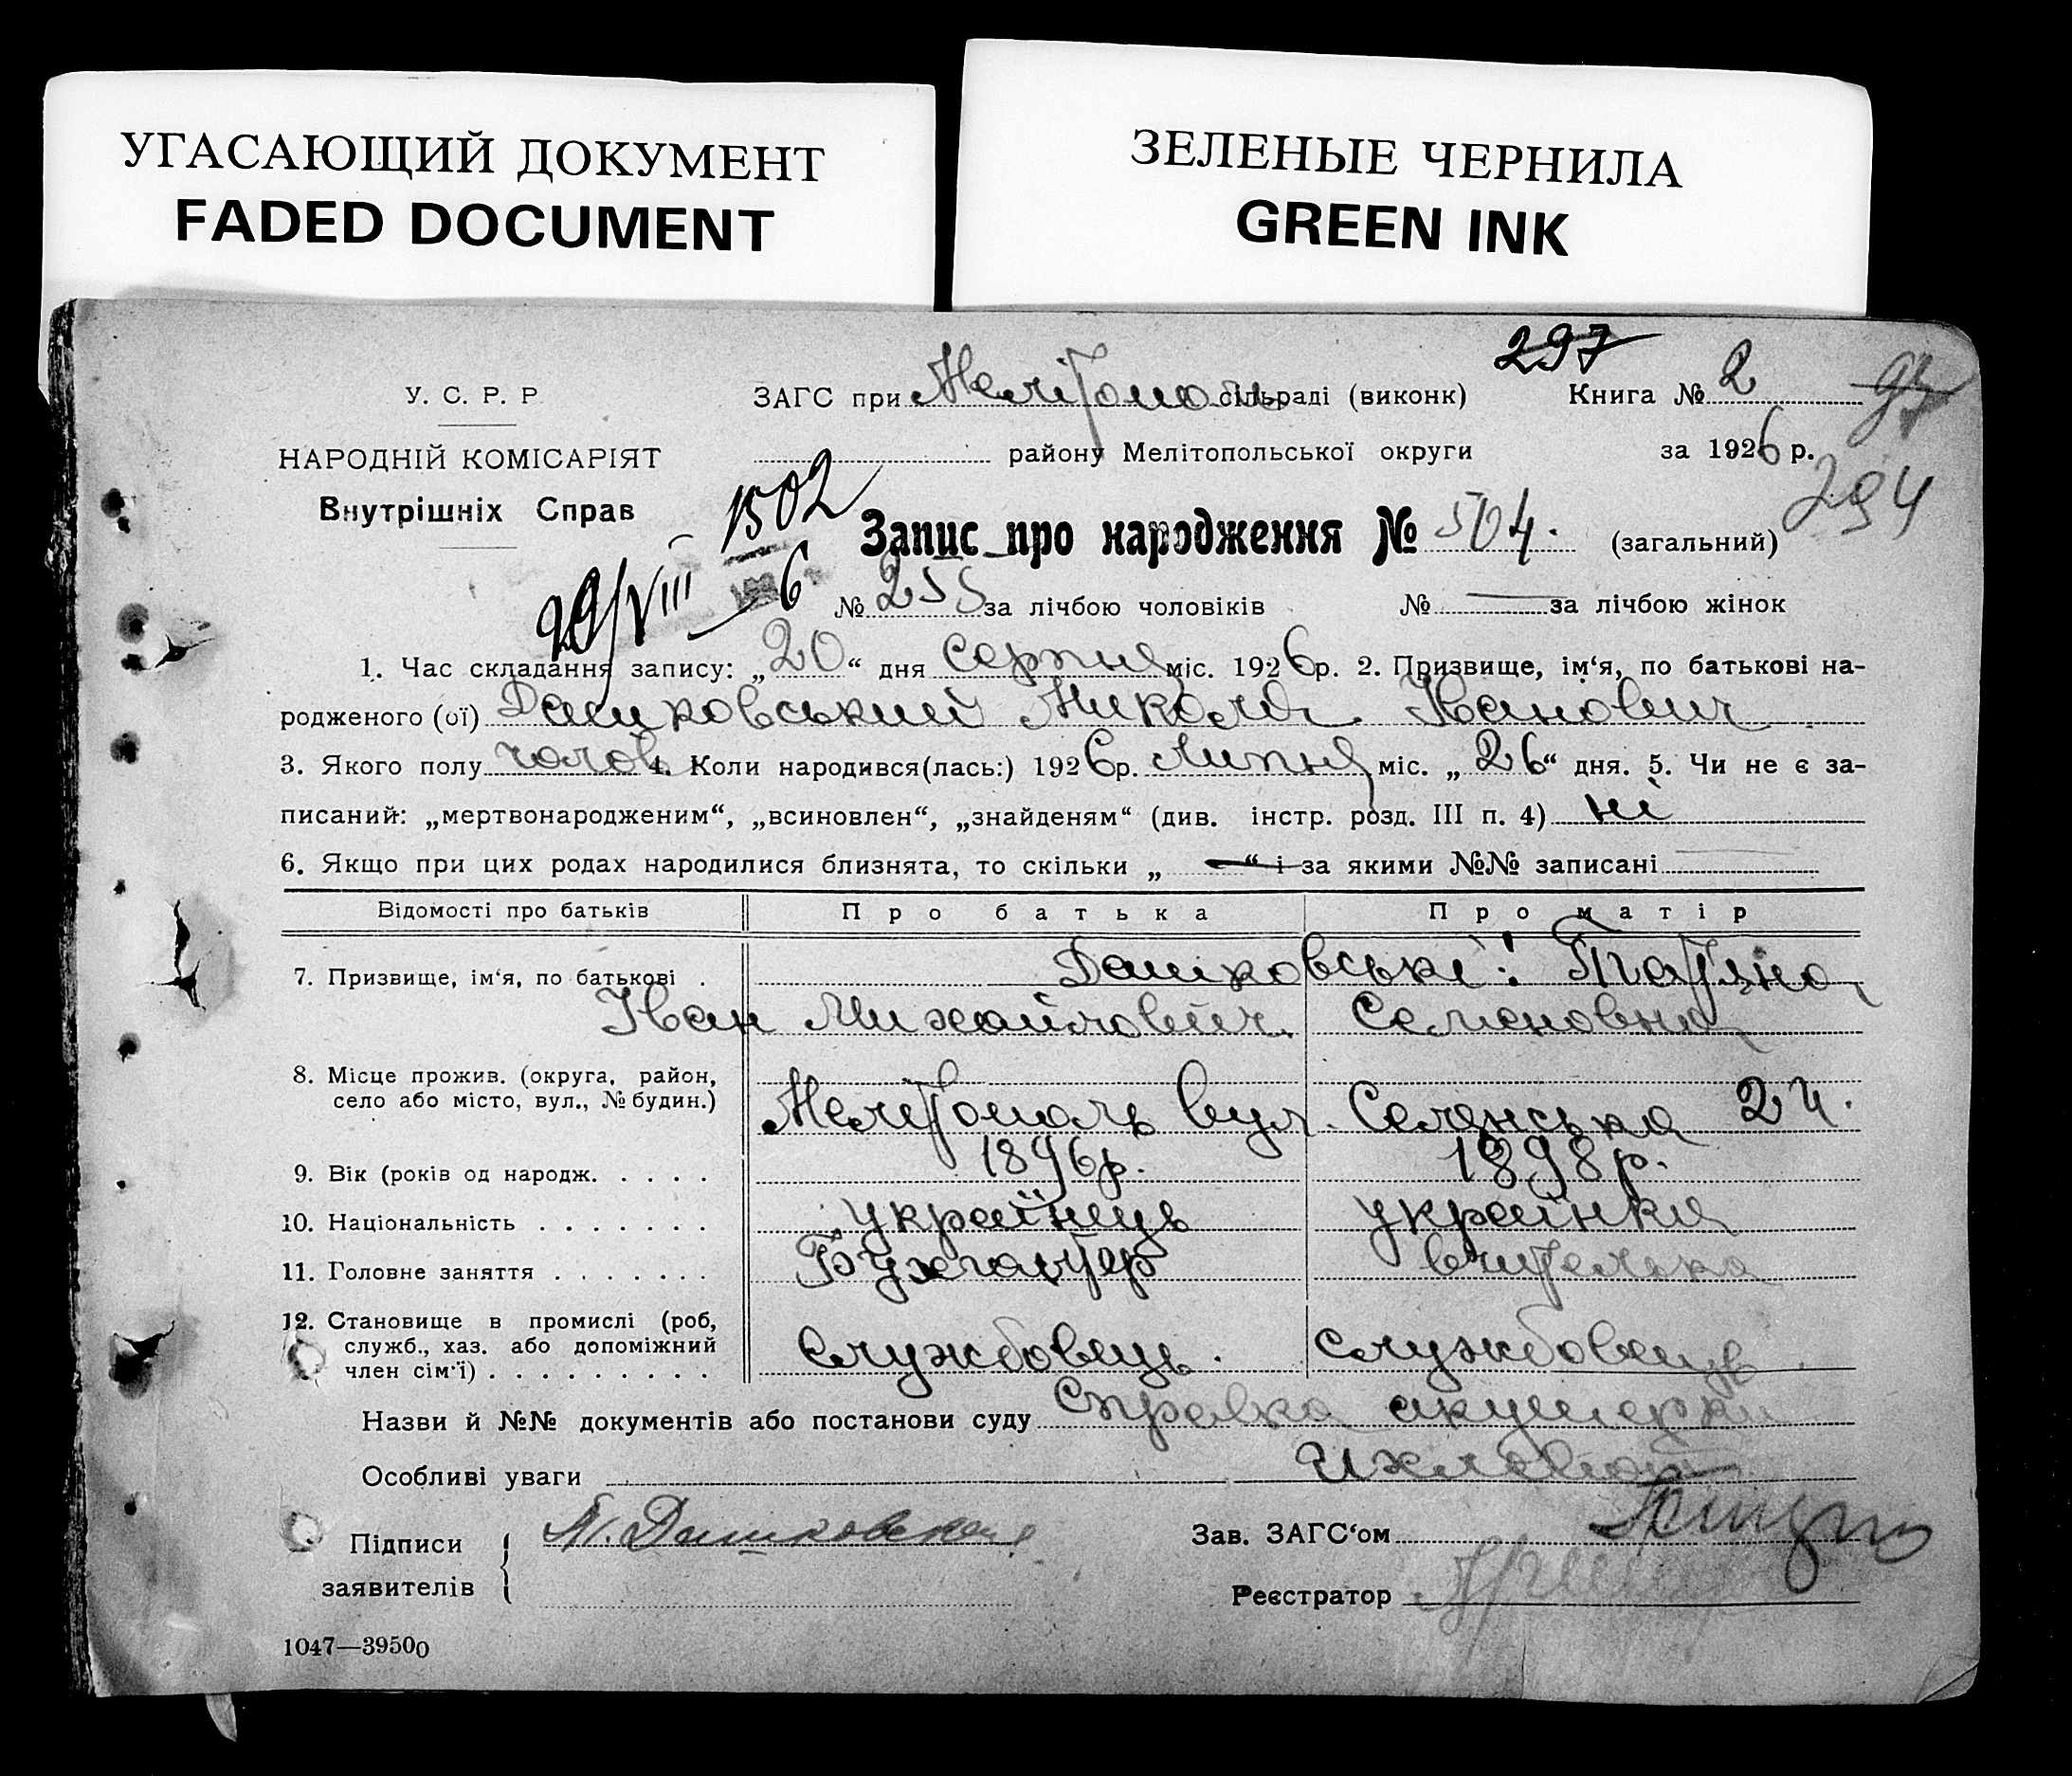 УГАСАЮЩИЙ ДОКУМЕНТ
FADED DOCUMENT
ЗЕЛЕНЫЕ ЧЕРНИЛА
GREEN INK
297
У. С. Р. Р
ЗАГС при Мелітополь сільраді (виконк) Книга № 2 93
НАРОДНІЙ КОМІСАРІЯТ
району Мелітопольської округи за 1926 р.
Внутрішніх Справ
294
1502
Запис про народження № 504. (загальний)
29/VIII 1926
№ 255 за лічбою чоловіків № — за лічбою жінок
1. Час складання запису: „20“ дня серпня міс. 1926 р. 2. Призвище, ім‘я, по батькові на-
родженого (ої) Дашковський Микола Іванович
3. Якого полу чолов 4. Коли народився(лась:) 1926 р. Липня міс. „26“ дня. 5. Чи не є за-
писаний: „мертвонародженим“, „всиновлен“, „знайденям“ (див. інстр. розд. III п. 4) ні
6. Якщо при цих родах народилися близнята, то скільки „ — “ і за якими №№ записані
Відомості про батьків Про батька Про матір
7. Призвище, ім‘я, по батькові . Дашковські: Татяна
Іван Михайлович Семеновна
8. Місце прожив. (округа, район,
село або місто, вул., № будин.) Мелітополь вул. Селянська 24.
9. Вік (років од народж. . . . . 1896р. 1898р.
10. Національність . . . . . . . українець українка
11. Головне заняття . . . . . . . Бухгалтер вчителька
12. Становище в промислі (роб,
служб., хаз. або допоміжний
член сім‘ї) . . . . . . . . . Службовець. службовець.
Назви й №№ документів або постанови суду Справка акушерки
Особливі уваги
Підписи
заявителів
Т. Дашковская
Зав. ЗАГС‘ом
Реєстратор
1047—39500